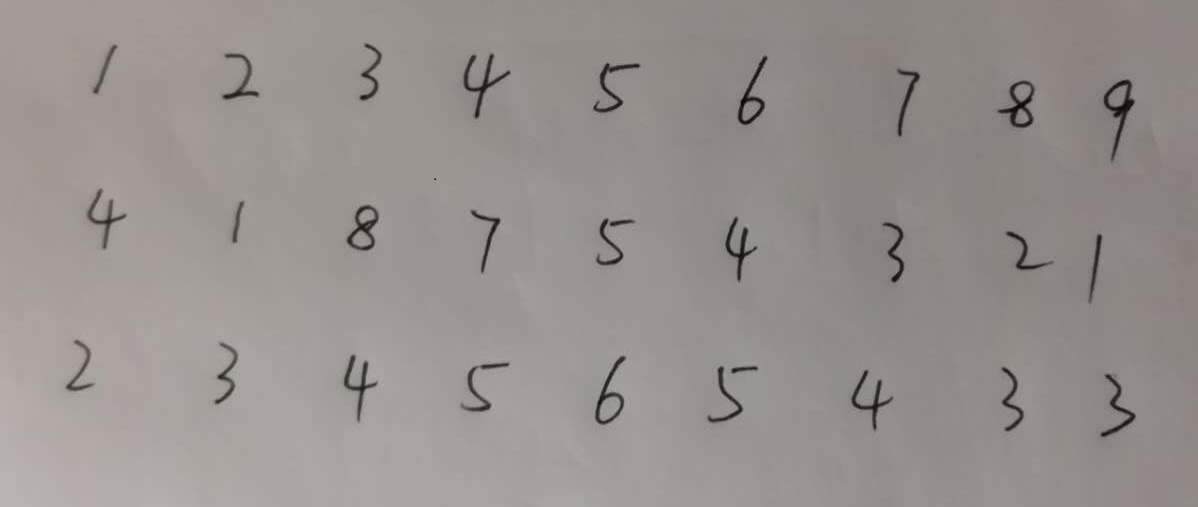 1 2 3 4 5 6 7 8 9
4 1 8 7 5 4 3 2 1
2 3 4 5 6 5 4 3 3